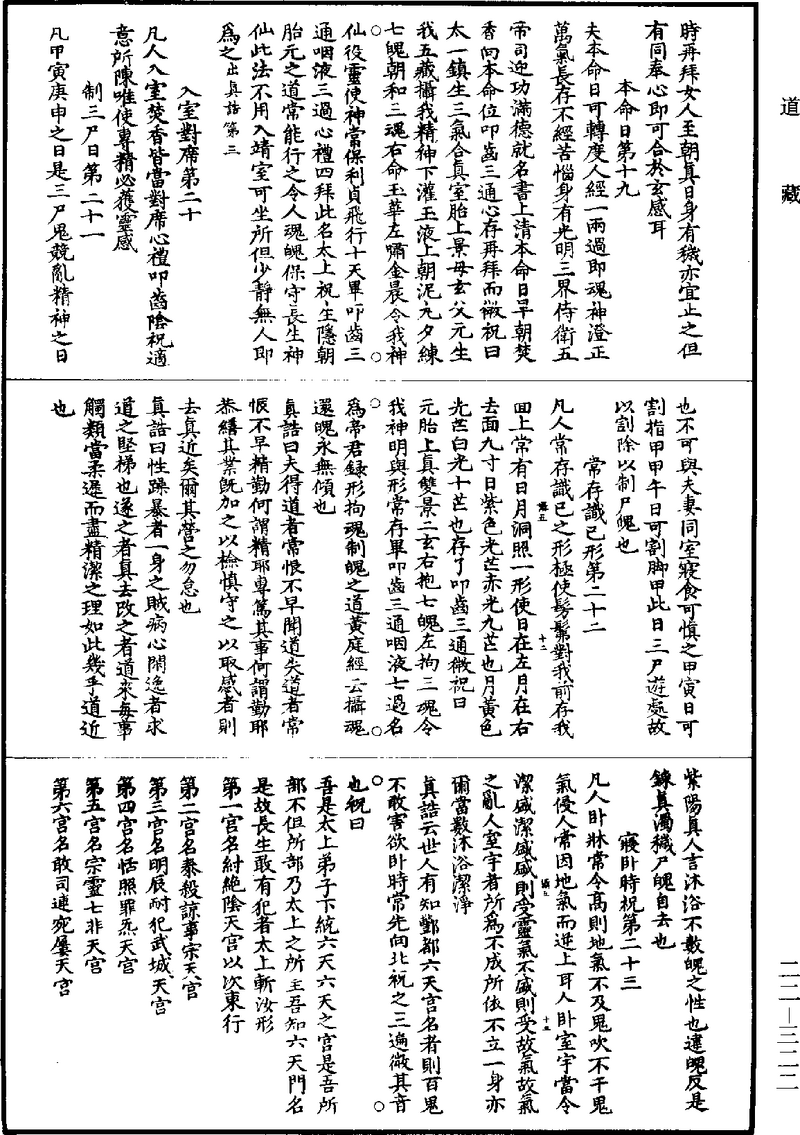 道藏
時再拜女人至朝真日身有穢亦宜止之但
有同奉心即可合於玄感耳
本命日第十九
夫本命日可轉度人經一兩過即魂神澄正
萬氣長存不經苦惱身有光明三界侍衛五
帝司迎功滿德就名書上清本命日早朝焚
香向本命位叩齒三通心存再拜而微祝曰
太一鎮生三氣合真室胎上景母玄父元生
我五藏攝我精神下灌玉液上朝泥丸夕練
七魄朝和三魂右命玉華左嘯金晨令我神
仙役靈使神常保利貞飛行十天畢叩齒三
通咽液三過心禮四拜此名太上祝生隱朝
胎元之道常能行之令人魂魄保守長生神
仙此法不用入靖室可坐所但少靜無人即
為之出真誥第三
入室對席第二十
凡人入室焚香皆當對席心禮叩齒陰祝適
意所陳唯使專精必獲靈感
制三尸日第二十一
凡甲寅庚申之日是三尸鬼競亂精神之日
也不可與夫妻同室寢食可慎之甲寅日可
割指甲甲午日可割脚甲此日三尸遊處故
以割除以制尸魄也
常存識己形第二十二
凡人常存識己之形極使髣髴對我前存我
面上常有日月洞照一形使日在左月在右
去面九寸日紫色光芒赤光九芒也月黃色
光芒白光十芒也存了叩齒三通微祝曰
元胎上真雙景二玄右抱七魄左拘三魂令
我神明與形常存畢叩齒三通咽液七過名
為帝君錄形拘魂制魄之道黃庭經云攝魂
還魄永無傾也
真誥曰夫得道者常恨不早聞道失道者常
恨不早精勤何謂精耶專篤其事何謂勤耶
恭繕其業既加之以檢慎守之以取感者則
去真近矣爾其營之勿怠也
真誥曰性躁暴者一身之賊病心閑逸者求
道之堅梯也遂之者真去改之者道來每事
觸類當柔遲而盡精潔之理如此幾乎道近
也
紫陽真人言沐浴不數魄之性也違魄反是
鍊真濁穢尸魄自去也
寢卧時祝第二十三
凡人卧牀常令高則地氣不及鬼吹不干鬼
氣侵人常因地氣而逆上耳人卧室宇當令
潔盛潔盛盛則受靈氣不盛則受故氣故氣
之亂人室宇者所為不成所依不立一身亦
爾當數沐浴潔淨
真誥云世人有知酆都六天宮名者則百鬼
不敢害欲卧時常先向北祝之三遍微其音
也祝曰
吾是太上弟子下統六天六天之宮是吾所
部不但所部乃太上之所主吾知六天門名
是故長生敢有犯者太上斬汝形
第一宮名紂絕陰天宮以次東行
第二宮名泰殺諒事宗天宮
第三宮名明辰耐犯武城天宮
第四宮名恬照罪炁天宮
第五宮名宗靈七非天宮
第六宮名敢司連宛屢天宮
二二—三二二